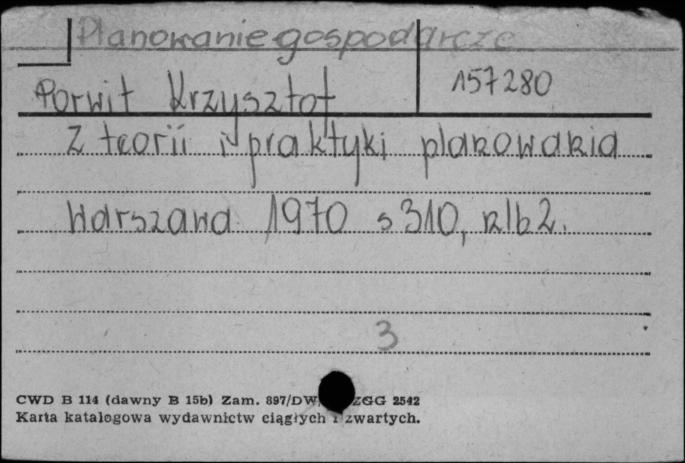 Planowanie gospodarcze
Porwit Krzysztof
157280
Z teorii i praktyki planowania
Warszawa 1970 s 310, nlb 2.
3
CWD B 114 (dawny B 15b) Zam. 897/DW ZGG 2542
Karta katalogowa wydawnictw ciągłych i zwartych.